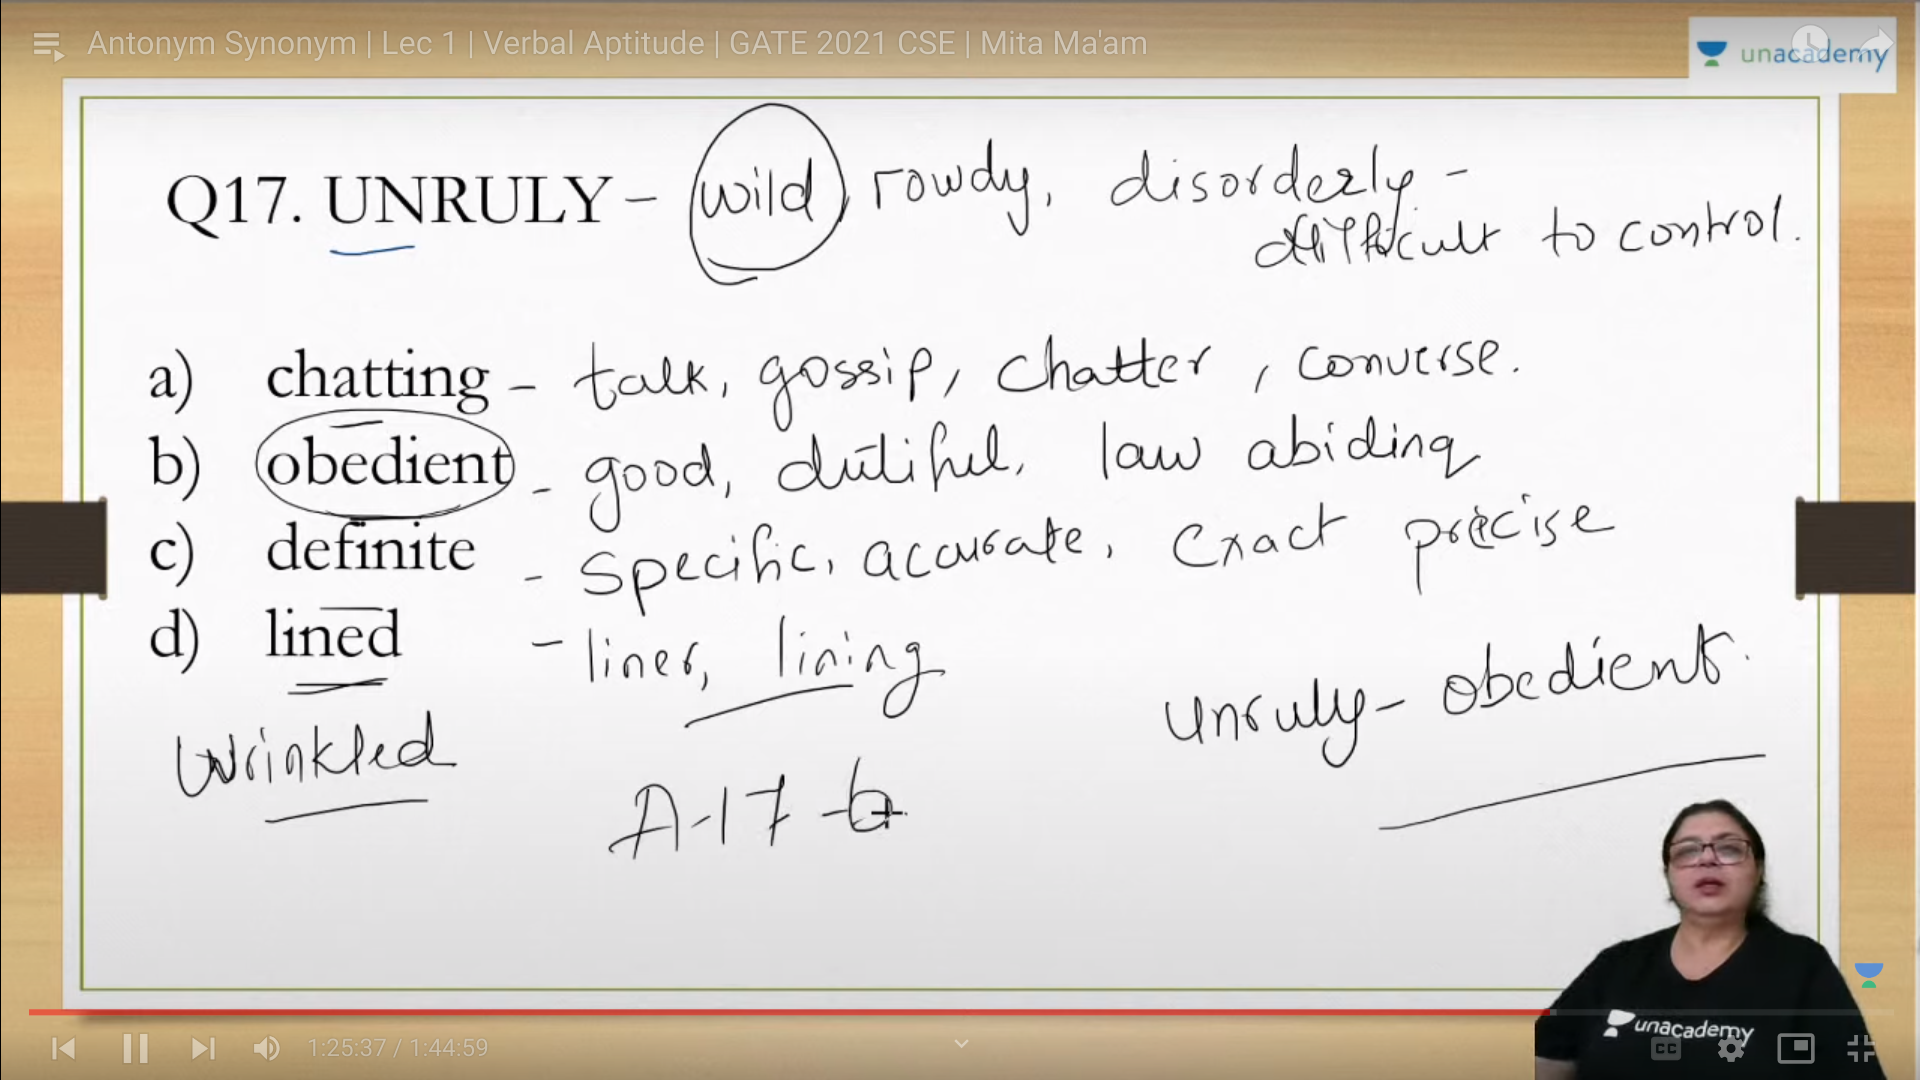 Antonym Synonym | Lec 1 | Verbal Aptitude | GATE 2021 CSE | Mita Ma'am
unacademy
Q17. UNRULY - wild, rowdy, disorderly -
difficult to control.
a) chatting - talk, gossip, chatter, converse.
b) obedient - good, dutiful, law abiding
c) definite - specific, accurate, exact precise
d) lined - liner, lining
Unruly - obedient.
Wrinkled
A-17-b
unacademy
1:25:37 / 1:44:59
CC